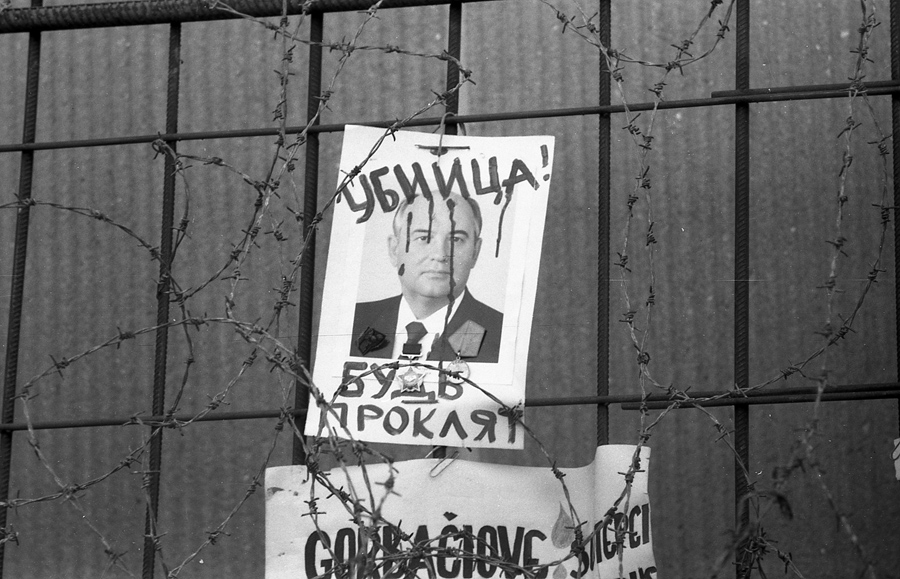 УБИЙЦА!
БУДЬ
ПРОКЛЯТ
GORBAČIOVE